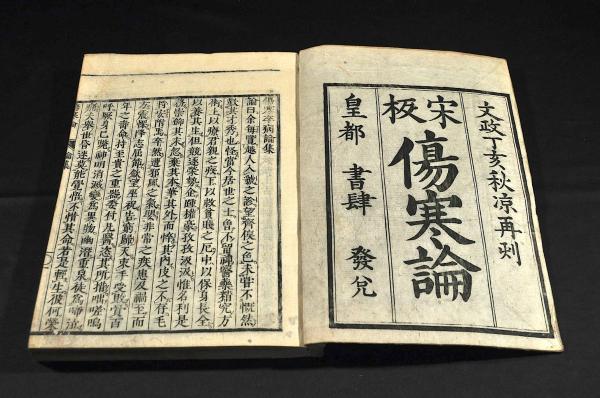 文政丁亥秋凉再刻
宋板
傷寒論
皇都 書肆 發兌
傷寒卒病論集
論曰余每覽越人入虢之診望齊侯之色未嘗不慨然
歎其才秀也怪當今居世之士曾不留神醫藥精究方
術上以療君親之疾下以救貧賤之厄中以保身長全
以養其生但競逐榮勢企踵權豪孜孜汲汲惟名利是
務崇飾其末忽棄其本華其外而悴其內皮之不存毛
將安附焉卒然遭邪風之氣嬰非常之疾患及禍至而
方震慄降志屈節欽望巫祝告窮歸天束手受敗賫百
年之壽命持至貴之重器委付凡醫恣其所措咄嗟嗚
呼厥身已斃神明消滅變爲異物幽潛重泉徒爲啼泣
痛夫舉世昏迷莫能覺悟不惜其命若是輕生彼何榮